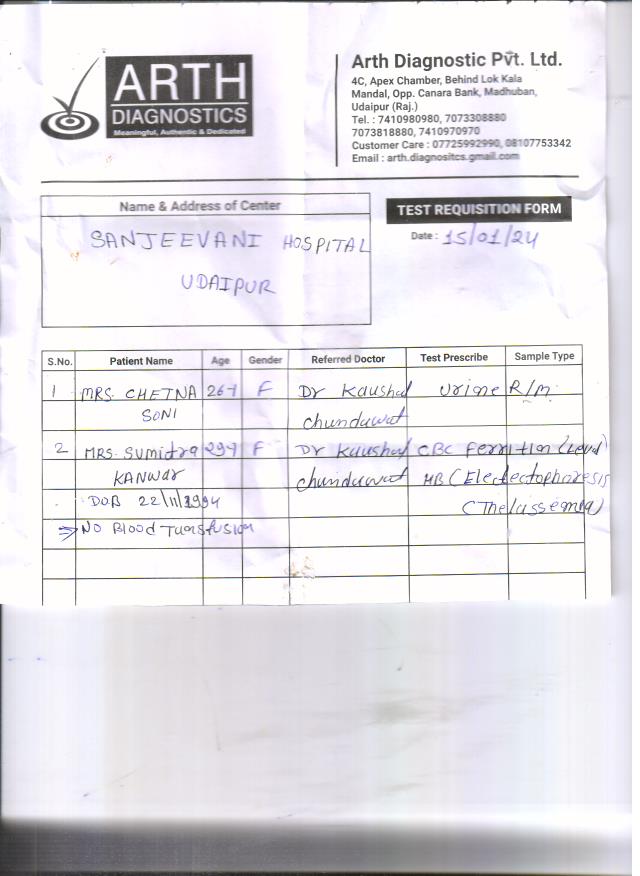 ARTH
DIAGNOSTICS
Meaningful, Authentic & Dedicated
Arth Diagnostic Pvt. Ltd.
4C, Apex Chamber, Behind Lok Kala
Mandal, Opp. Canara Bank, Madhuban,
Udaipur (Raj.)
Tel. : 7410980980, 7073308880
7073818880, 7410970970
Customer Care : 07725992990, 08107753342
Email : arth.diagnositcs.gmail.com
Name & Address of Center
SANJEEVANI HOSPITAL
UDAIPUR
TEST REQUISITION FORM
Date : 15/01/24
S.No. Patient Name Age Gender Referred Doctor Test Prescribe Sample Type
1 MRS. CHETNA 26Y F Dr Kaushal Urine R/M
SONI chundawat
2 MRS. Sumitra 29Y F Dr Kaushal CBC Ferrition (Level)
KANWAR chundawat HB (Electectophoresis
DOB 22/11/1994 (Thelassemia)
⇒ No Blood Tursfusion